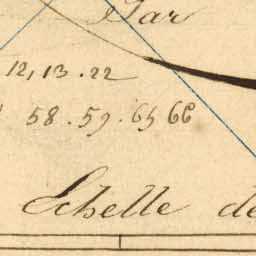 Par
12, 13. 22
58. 59. 65 66
Echelle de